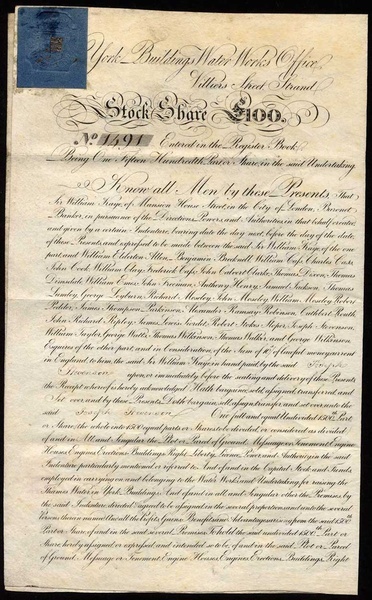 York Buildings Water Works Office
Villiers Street Strand
Stock Share £100.
No. 1491 Entered in the Register Book
Being One Fifteen Hundredth Part or Share, in the said Undertaking.
Know all Men by these Presents That
Sir William Kaye, of Mansion House Street, in the City of London, Baronet
Banker, in pursuance of the Directions, Powers, and Authorities, in that behalf, created
and given by a certain Indenture, bearing date the day next, before the day of the date
of these Presents, and expressed to be made between the said Sir William Kaye, of the one
part, and William Elderton Allen, Benjamin Brecknell, William Cass, Charles Cass,
John Cock, William Clay, Frederick Cass, John Calvert Clarke, Thomas Dixon, Thomas
Dimsdale, William Emes, John Freeman, Anthony Henry, Samuel Jackson, Thomas
Lumley, George Leyburn, Richard Moseley, John Moseley, William Moseley, Robert
James Thompson, Parkinson, Alexander Ramsay Robinson, Cuthbert
John Richard Ripley, James Lewis Robert Stokes Joseph Stevenson,
William Taylor, George Watts, Thomas Wilkinson, Thomas Walker, and George Wilkinson,
Esquires of the other part, and in Consideration, of the Sum of £ of lawful money current
in England, to him, the said Sir William Kaye, in hand paid, by the said Joseph
Stevenson upon, or immediately before the sealing and delivery of these Presents
the Receipt whereof is hereby acknowledged Hath bargained, sold, assigned, transferred, and
Set over and by these Presents Doth bargain, sell, assign, transfer, and set over unto the
said Joseph Stevenson One full and equal Undivided 1500th Part
or Share, the whole into 1500 equal parts or Shares to be divided, or considered as divided
of and in All and Singular the Plot or Parcel of Ground, Messuage, or Tenement Engine
Houses, Engines, Erections, Buildings, Right, Liberty, License, Power and Authority, in the said
Indenture particularly mentioned or referred to And of and in the Capital Stock and Funds,
employed in carrying on and belonging to the Water Works and Undertaking for raising the
Thames Water in York Buildings. And of and in all and Singular other the Premises by
the said Indenture directed Agreed to be assigned in the several proportions and unto the several
Persons therein named And all the Profits, Gains, Benefits and Advantages arising from the said 1500th
Part or Share of and in the said several Premises To hold the said undivided 1500th Part or
Share hereby assigned or expressed and intended so to be, of and in the said Plot or Parcel
of Ground Messuage or Tenement Engine Houses, Engines, Erections, Buildings, Right